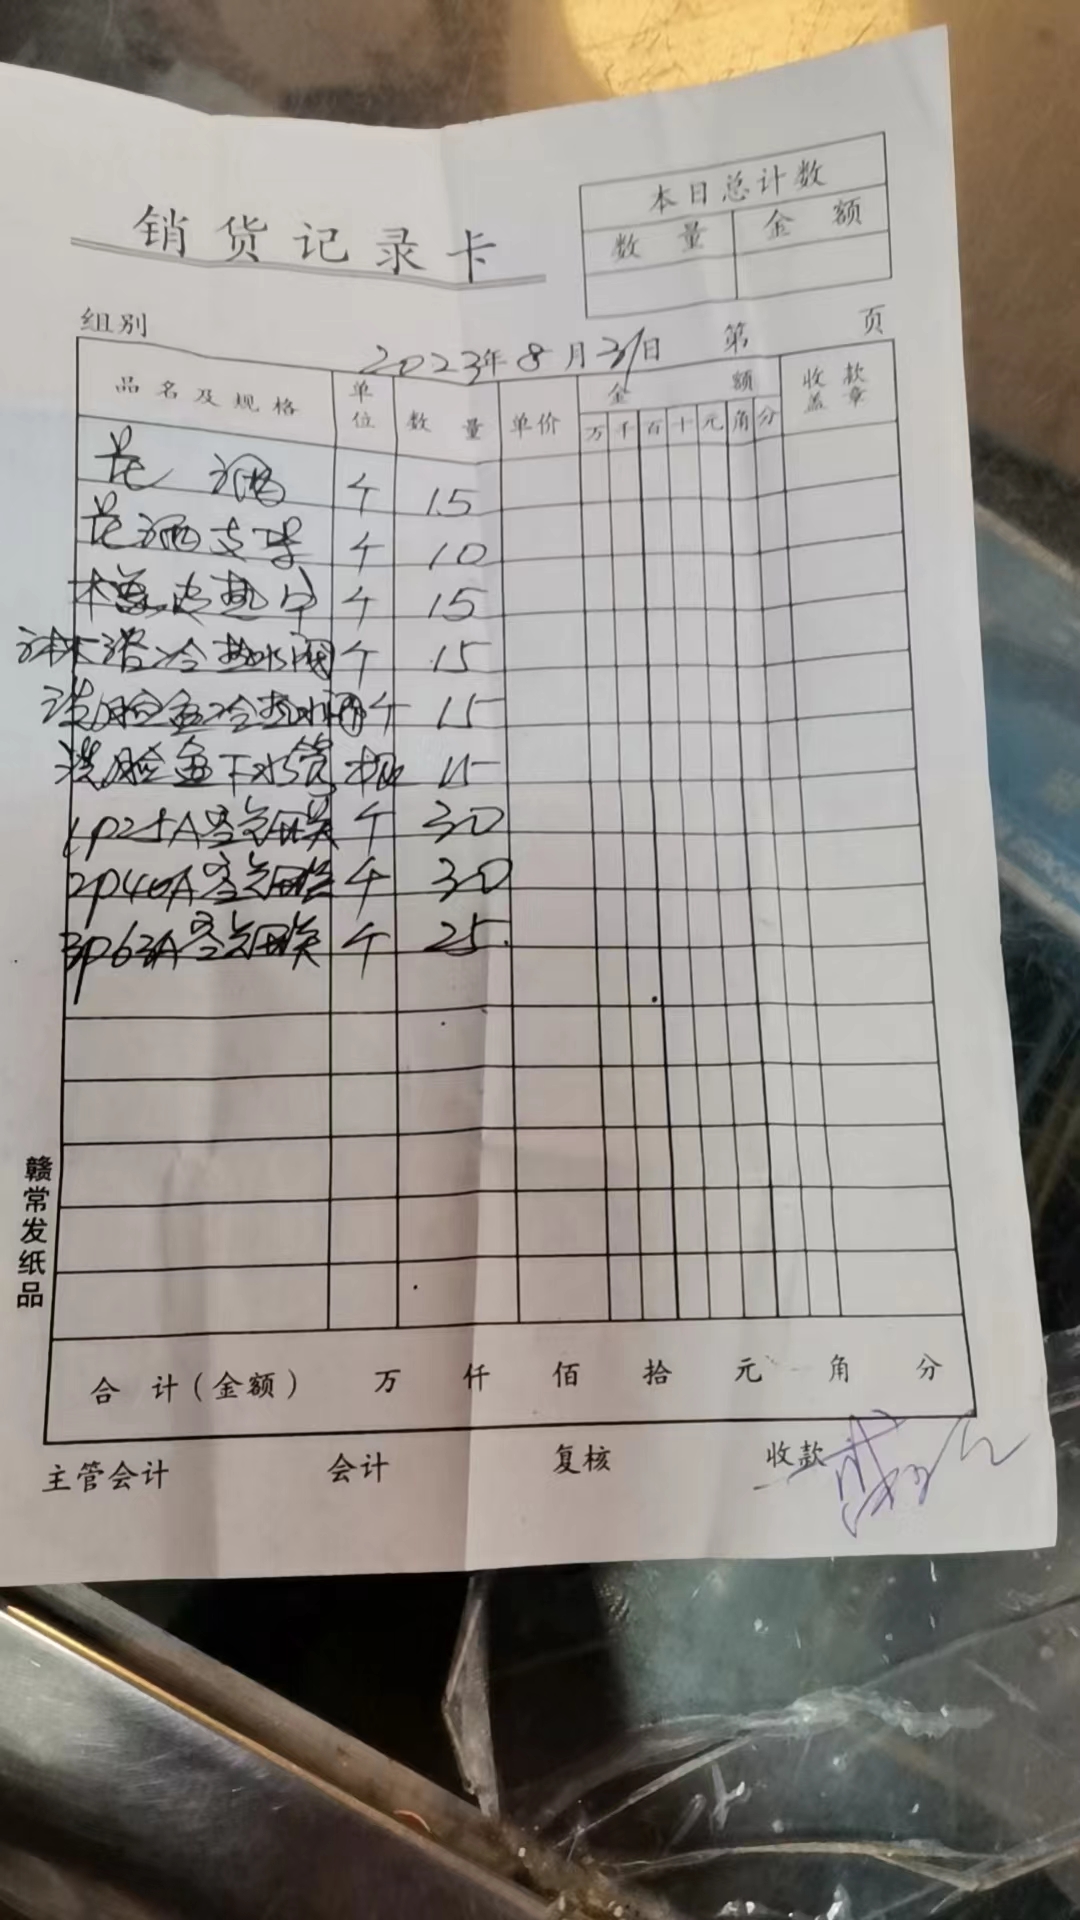 本日总计数
数量 金额
销货记录卡
组别 2023年8月31日 第 页
品名及规格 单位 数量 单价 金额 收款盖章
万 千 百 十 元 角 分
花洒 个 15
花洒支架 个 10
个 15
淋浴冷热水阀 个 15
洗脸盆冷热水阀 个 15
洗脸盆下水管 根 15
1P25A空气开关 个 30
2P40A空气开关 个 30
3P63A空气开关 个 25
赣常发纸品
合计(金额) 万 仟 佰 拾 元 角 分
主管会计 会计 复核 收款